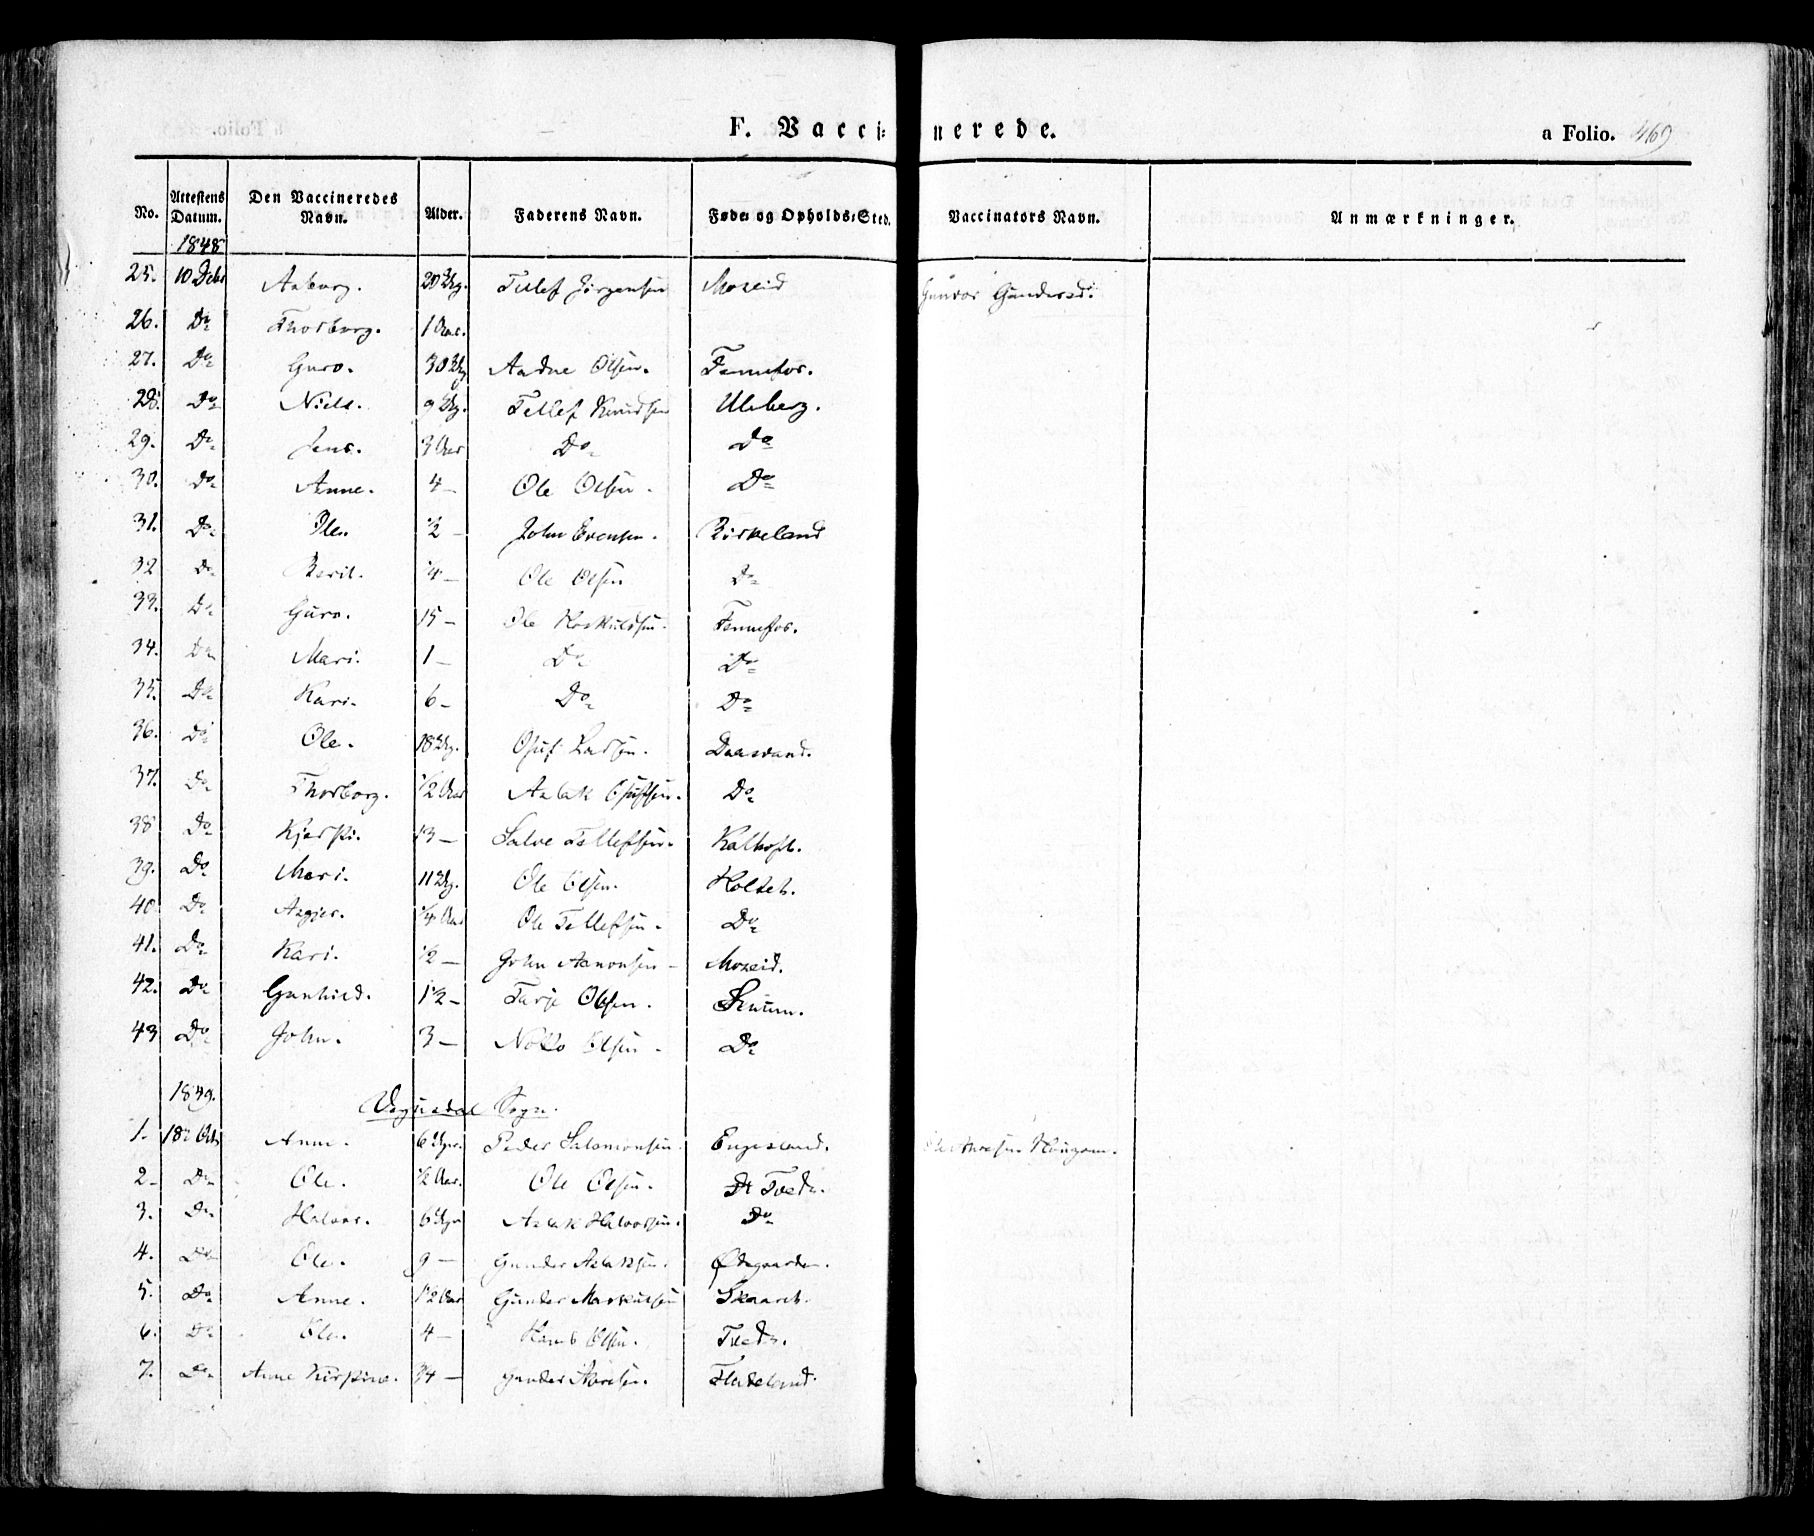 F. Vaccinerede.
a Folio. 469
No. Attestens Datum. Den Vaccineredes Navn. Alder. Faderens Navn. Føde- og Opholds-Sted. Vaccinators Navn. Anmærkninger.
1848
25. 10 Debr Asborg. 20 Ug. Tellef Jørgensen Moseid Gunvor Gundersd:
26. Do Thorborg. 1 Aar.
27. Do Guro. 30 Ug Aadne Olsen. Fennefos.
28. Do Niels. 9 Ug. Tellef Knudsen Uleberg.
29. Do Jens. 3 Aar Do Do
30. Do Anne. 4 — Ole Olsen. Do
31. Do Ole. ½ — John Evensen. Birkeland
32 Do Berit. ¼ — Ole Olsen Do
33. Do Guro. 15 — Ole Roskuldsen. Fennefos.
34. Do Mari. 1 — Do Do
35. Do Kari. 6 — Do Do
36. Do Ole. 18 Ug. Osuf Larsen. Daasvand.
37. Do Thorborg. ½ Aar Aslak Osufsen. Do
38 Do Kjersti. 13 — Salve Tellefsen. Kalhoft.
39. Do Mari. 11 Ug. Ole Olsen. Holtet.
40 Do Asgjer. ¼ Aar Ole Tellefsen. Do
41. Do Kari. ½ — John Aanonsen — Moseid.
42. Do Gunhild. 1½ — Tarje Olsen. Skuum.
43 Do John. 3 — Notto Olsen — Do
1849.
Vegusdal Sogn.
1. 18 Octb Anne. 6 Ugr. Peder Salamonsen. Engesland. Aresen Hougom.
2 — Do Ole. ½ Aar. Ole Olsen. Tvedt.
3. Do Halvor. 6 Ugr Aslak Halvorsen. Do
4. Do Ole. 9 — Gunder Aslaksen. Ødegaarden.
5. Do Anne. 1½ Aar Gunder Markussen Skaaret.
6. Do Ole. 4 — Hans Olsen. Tvedt.
7. Do Anne Kirstine. ¾ — Gunder Aresen. Fladeland.